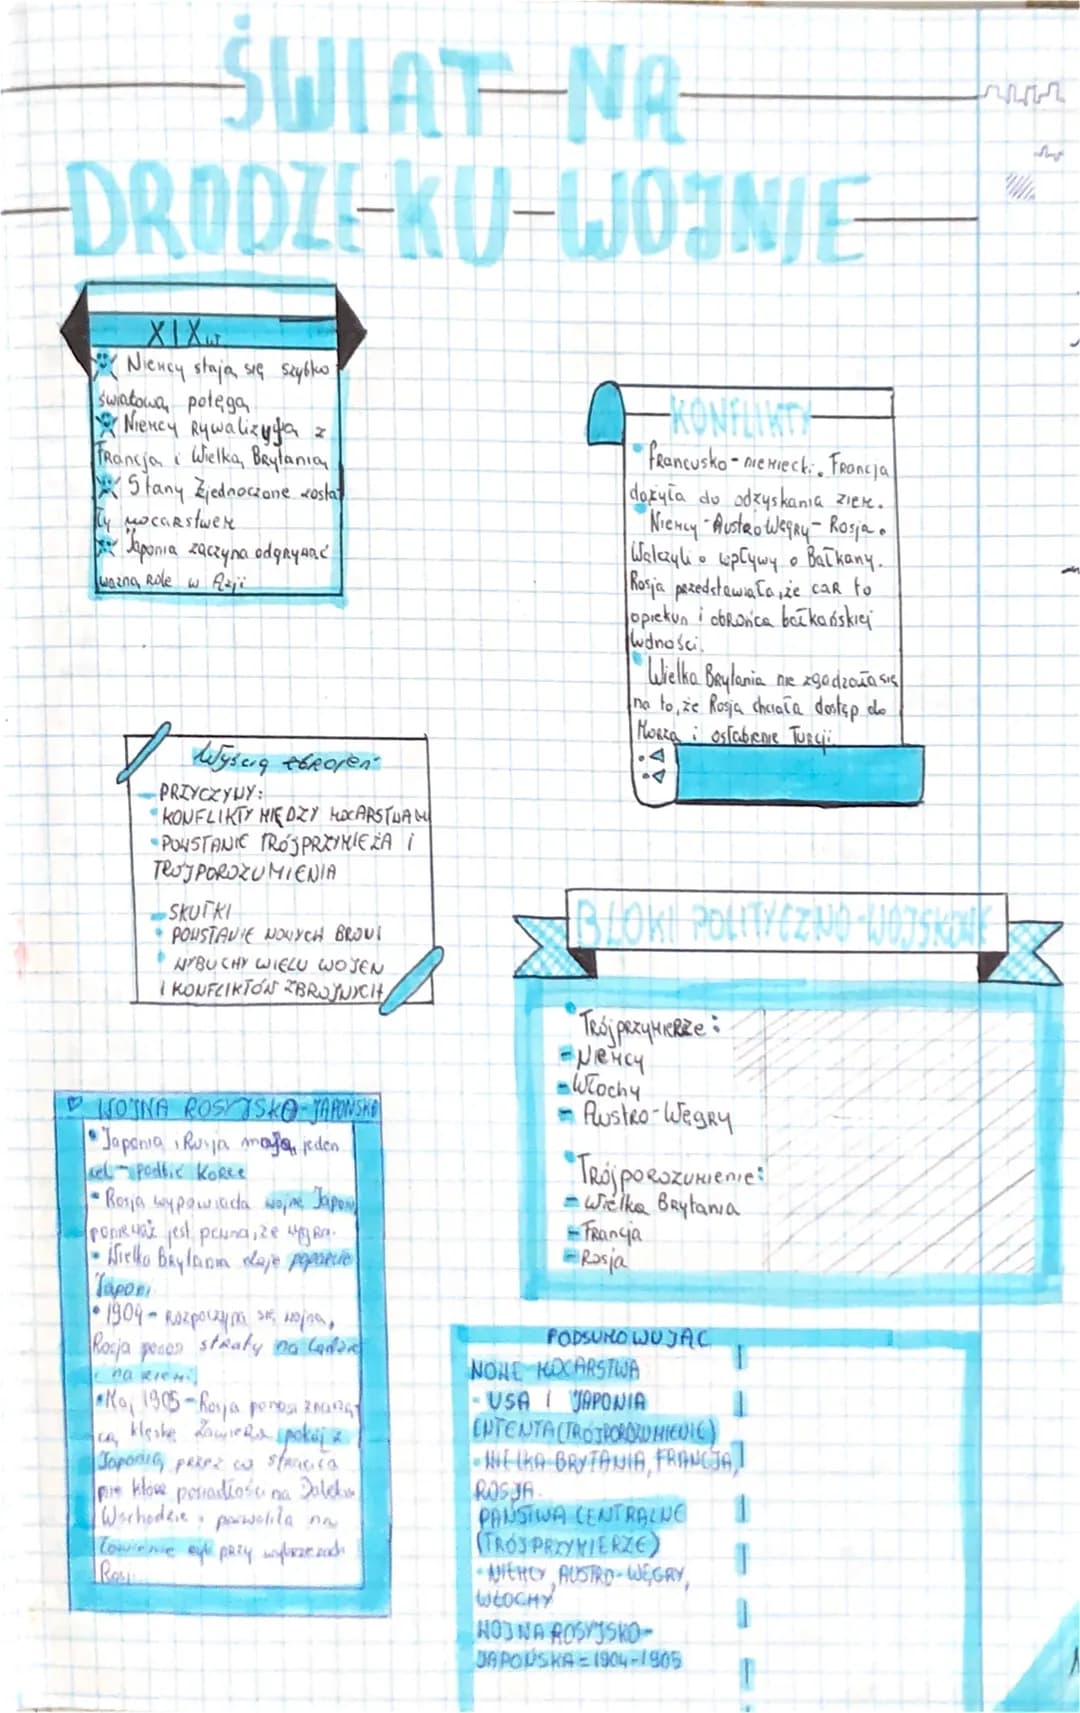 ŚWIAT NA
DRODZE KU WOJNIE
XIXw
Niemcy stają się szybko
światową potęgą
Niemcy Rywalizyją z
Francją i Wielką Brytanią
Stany Zjednoczone zosta
ły mocarstwem
Japonia zaczyna odgrywać
ważną Role w Azji
KONFLIKTY
francusko-niemiecki. Francja
dążyła do odzyskania ziem.
Niemcy-AustroWęgry-Rosja.
Walczyli o wpływy o Bałkany.
Rosja przedstawiała, że caR to
opiekun i obRońca bałkańskiej
wolności.
Wielka BRytania nie zgadzała się
na to, że Rosja chciała dostęp do
Morza i osłabienie Turcji.
Wyścig zbrojeń
PRZYCZYNY:
KONFLIKTY MIĘDZY MOCARSTWAMI
POWSTANIE TRÓJPRZYMIEŻA I
TRÓJPOROZUMIENIA
SKUTKI
POWSTANIE NOWYCH BRONI
WYBUCHY WIELU WOJEN
I KONFLIKTÓW ZBROJNYCH
BLOKI POLITYCZNO-WOJSKOWE
TRójpRzymieRze:
-Niemcy
-Włochy
- AustRo-WęgRy
Trójporozumienie:
- Wielka BRytania
- Francja
- Rosja
WOJNA ROSYJSKO-JAPOŃSKA
Japonia i Rosja mają jeden
cel - podbić Koree
Rosja wypowiada wojnę Japonii
ponieważ jest pewna, że wygra.
Wielka BRytania daje poparcie
Japonii
1904 - Rozpoczyna się wojna,
Rosja ponosi straty na lądzie
i na
Maj 1905 - Rosja ponosi znaczą
cą klęskę Zawiera pokój z
Japonią, przez co straciła
posiadłości na Daleki
Wschodzie i pozwoliła na
łowienie ryb przy wybrzeżach
Rosji
PODSUMOWUJĄC
NOWE MOCARSTWA
- USA I JAPONIA
ENTENTA (TRÓJPOROZUMIENIE)
- WIELKA BRYTANIA, FRANCJA,
ROSJA.
PAŃSTWA CENTRALNE
(TRÓJPRZYMIERZE)
- NIEMCY, AUSTRO-WĘGRY,
WŁOCHY
WOJNA ROSYJSKO-
JAPOŃSKA = 1904-1905